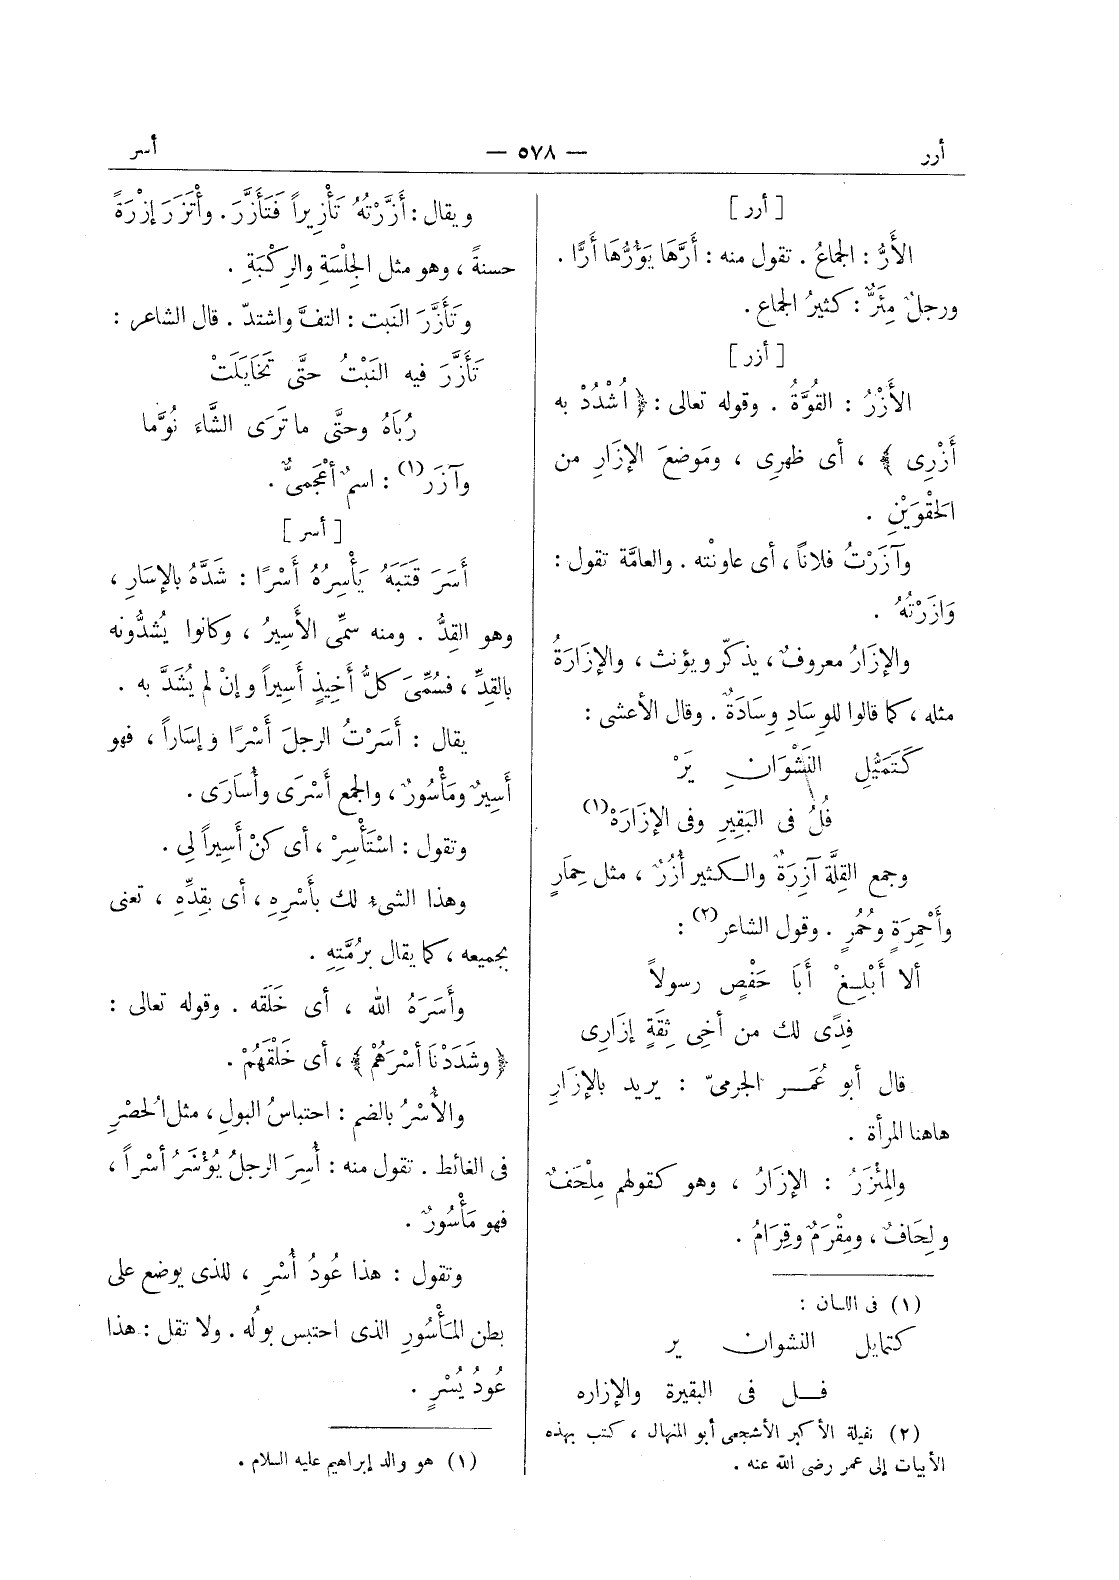 أرر
— ٥٧٨ —
أسر
[ أرر ]
الأَرُّ : الجماعُ . تقول منه : أَرَّهَا يَؤُرُّهَا أَرًّا .
ورجلٌ مِئَرٌّ : كثيرُ الجماع .
[ أزر ]
الأَزْرُ : القُوَّةُ . وقوله تعالى : ﴿ اُشْدُدْ به
أَزْرِى ﴾ ، أى ظهرِى ، ومَوضعَ الإزَارِ من
الحَقْوَيْنِ .
وآزَرْتُ فلاناً ، أى عاونْته . والعامَّة تقول :
وَازَرْتُهُ .
والإزَارُ معروفٌ ، يذكّر ويؤنث ، والإزَارَةُ
مثله ، كما قالوا للوِسَادِ وِسَادَةٌ . وقال الأعشى :
كَتَمَيُّلِ النَشْوَانِ يَرْ
فُلُ فى البَقِيرِ وفى الإزَارَهْ(١)
وجمع القِلَّة آزِرَةٌ والكثير أُزُرٌ ، مثل حِمَارٍ
وأَحْمِرَةٍ وحُمُرٍ . وقول الشاعر(٢) :
ألا أَبْلِغْ أَبَا حَفْصٍ رسولاً
فِدًى لك من أخِى ثِقَةٍ إزَارِى
قال أبو عُمَر الجرمىّ : يريد بالإزَارِ
هاهنا المرأة .
والمِئْزَرُ : الإزَارُ ، وهو كقولهم مِلْحَفٌ
ولِحَافٌ ، ومِقْرَمٌ وقِرَامٌ .
(١) فى اللسان :
كتمايل النشوان ير
فل فى البقيرة والإزاره
(٢) نفيلة الأكبر الأشجعى أبو المنهال ، كتب بهذه
الأبيات إلى عمر رضى الله عنه .
ويقال : أَزَّرْتُهُ تَأْزِيراً فَتَأَزَّرَ . وأْتَزَرَ إزْرَةً
حسنةً ، وهو مثل الجِلْسَةِ والرِكْبَةِ .
وتَأَزَّرَ النَبت : التفَّ واشتدّ . قال الشاعر :
تَأَزَّرَ فيه النَبْتُ حتَّى تَخَايَلَتْ
رُبَاهُ وحتَّى ما تَرَى الشَّاءَ نُوَّمَا
وآزَر(١) : اسمٌ أعْجَمىٌّ .
[ أسر ]
أَسَرَ قَتَبَهُ يَأْسِرُهُ أَسْرًا : شَدَّهُ بالإسَارِ ،
وهو القِدُّ . ومنه سمِّى الأَسِيرُ ، وكانوا يُشدُّونه
بالقِدِّ ، فسُمِّىَ كلُّ أَخِيذٍ أَسِيراً وإنْ لم يُشَدَّ به .
يقال : أَسَرْتُ الرجلَ أَسْرًا وإسَاراً ، فهو
أَسِيرٌ ومَأْسُورٌ ، والجمع أَسْرَى وأُسَارَى .
وتقول : اسْتَأْسِرْ ، أى كنْ أَسِيراً لِى .
وهذا الشىء لك بأَسْرِهِ ، أى بقِدِّهِ ، تعنى
بجميعه ، كما يقال برُمَّتِهِ .
وأَسَرَهُ الله ، أى خَلَقَه . وقوله تعالى :
﴿ وشَدَدْنَا أسْرَهُمْ ﴾ ، أى خَلْقَهُمْ .
والأُسْرُ بالضم : احتباسُ البولِ ، مثل الحُصْرِ
فى الغائط . تقول منه : أُسِرَ الرجلُ يُؤْسَرُ أسْراً ،
فهو مَأْسُورٌ .
وتقول : هذا عُودُ أُسْرٍ ، للذى يوضع على
بطن المَأْسُورِ الذى احتبس بولُه . ولا تقل : هذا
عُودُ يُسْرٍ .
(١) هو والد إبراهيم عليه السلام .